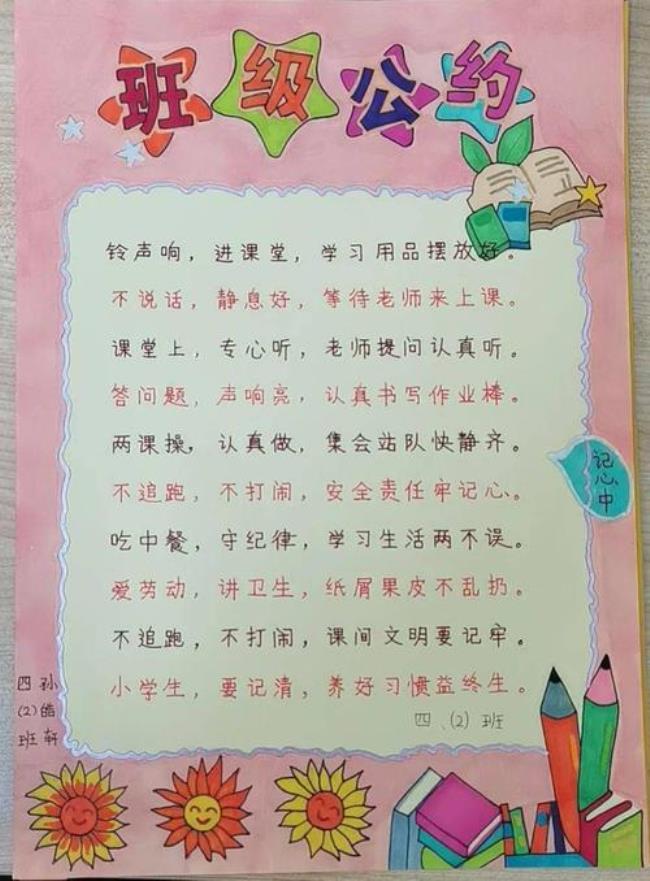 班级公约
铃声响，进课堂，学习用品摆放好。
不说话，静息好，等待老师来上课。
课堂上，专心听，老师提问认真听。
答问题，声响亮，认真书写作业棒。
两课操，认真做，集会站队快静齐。
不追跑，不打闹，安全责任牢记心。
吃中餐，守纪律，学习生活两不误。
爱劳动，讲卫生，纸屑果皮不乱扔。
不追跑，不打闹，课间文明要记牢。
小学生，要记清，养好习惯益终生。
四、(2)班
记心中
四(2)班
孙皓轩